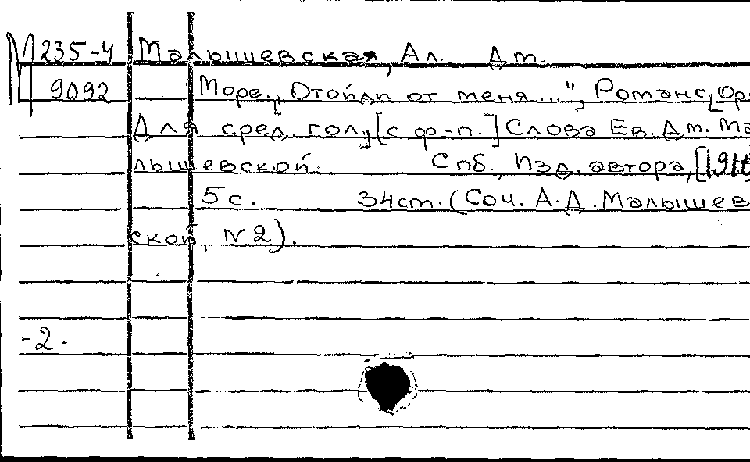 М 235-4 Малышевская, Ал. Дм.
9092 Море. „Отойди от меня...", Романс, [Ор
Для сред. гол. [с ф-п.] Слова Ев. Дм. Ма
лышевской. Спб., Изд. автора,
5 с. 34 cm. (Соч. А.Д. Малышев
ской, N 2).
-2.